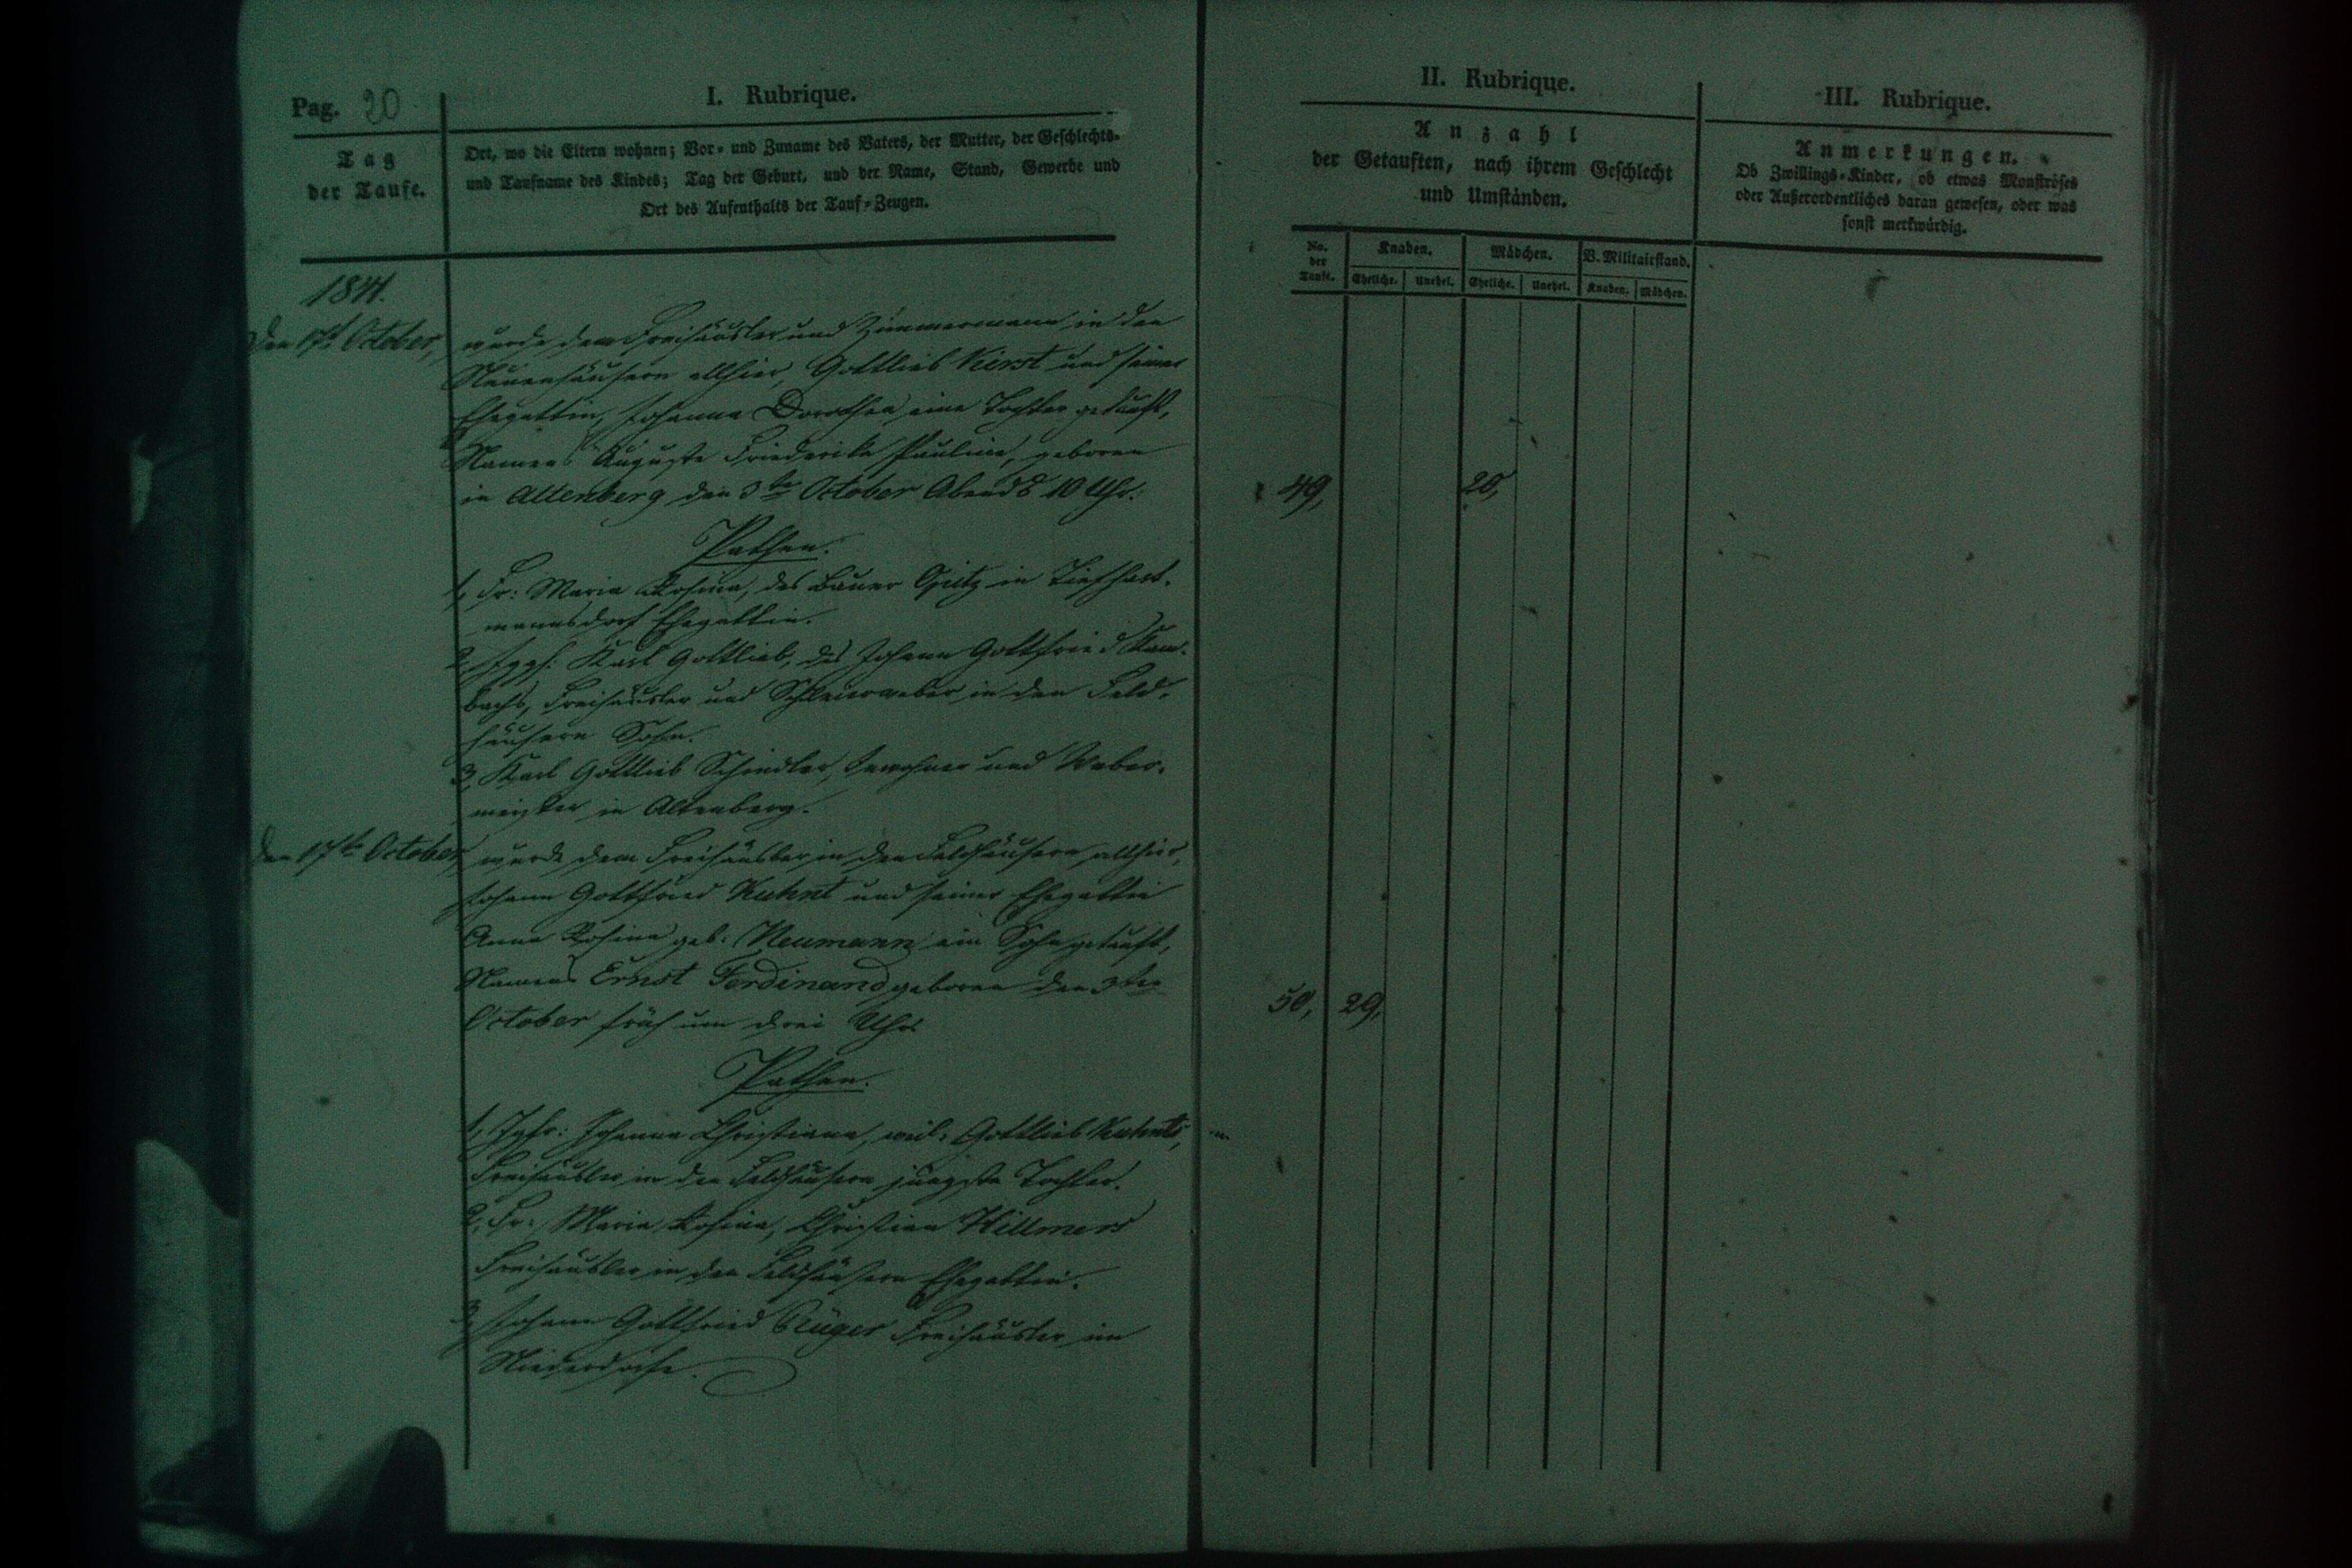 Pag. 20
I. Rubrique.
Tag
der Taufe.
Ort, wo die Eltern wohnen; Vor- und Zuname des Vaters, der Mutter, der Geschlechts-
und Taufname des Kindes; Tag der Geburt, und der Name, Stand, Gewerbe und
Ort des Aufenthalts der Tauf-Zeugen.
1841.
Den 17t October,
wurde dem Freihäusler und Zimmermann in den
Neuenhäusern allhier, Gottlieb Kirst und seiner
Ehegattin, Johanna Dorothea eine Tochter getauft,
Namens Auguste Friederike Pauline, geboren
in Altenberg den 3ten October Abends 10 Uhr.
Pathen.
1, Fr: Maria Rosina, des Bauer Opitz in Tiefhart-
mannsdorf Ehegattin.
2, Jggs: Karl Gottlieb, des Johann Gottfried Kam-
bachs, Freihäusler und Schleierweber in den Feld-
häusern Sohn.
3, Karl Gottlieb Schindler, Inwohner und Weber-
meister in Altenberg.
Den 17ten October,
wurde dem Freihäusler in den Feldhäusern allhier,
Johann Gottfried Kuhnt und seiner Ehegattin
Anna Rosina geb. Neumann ein Sohn getauft,
Namens Ernst Ferdinand geboren den 3ten
October früh um drei Uhr.
Pathen.
1, Jgfr: Johanna Christiana, weil: Gottlieb Kuhnts,
Freihäusler in den Feldhäusern jüngste Tochter.
2, Fr: Maria Rosina, Christian Hillmers
Freihäusler in den Feldhäusern Ehegattin.
3, Johann Gottfried Rüger Freihäusler im
Niederdorfe.
II. Rubrique.
Anzahl
der Getauften, nach ihrem Geschlecht
und Umständen.
No. der Taufe.
Knaben. Mädchen. V. Militairstand.
Eheliche. Unehel. Eheliche. Unehel. Knaben. Mädchen.
49, 20,
50, 29,
III. Rubrique.
Anmerkungen.
Ob Zwillings-Kinder, ob etwas Monströses
oder Außerordentliches daran gewesen, oder was
sonst merkwürdig.